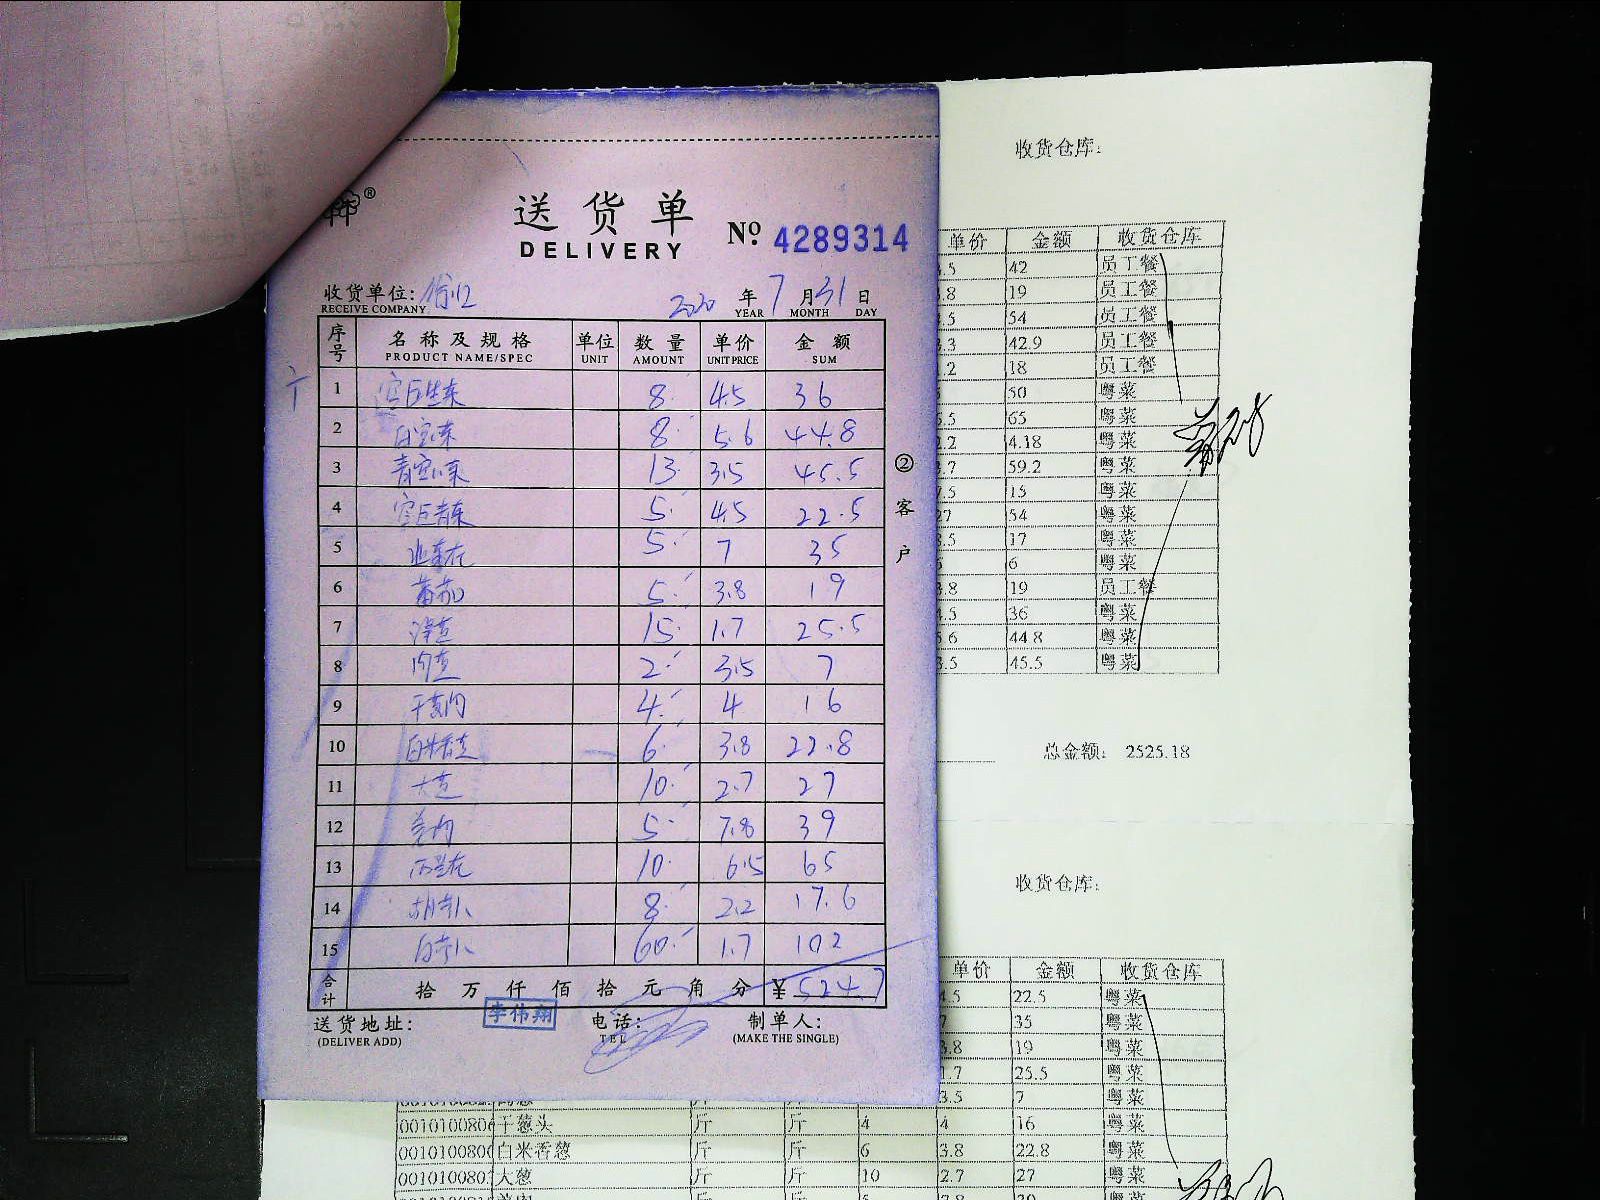 收货仓库：
送货单
DELIVERY
№ 4289314
收货单位：
RECEIVE COMPANY
2020 年 7 月 31 日
YEAR MONTH DAY
序号 名称及规格 单位 数量 单价 金额
PRODUCT NAME/SPEC UNIT AMOUNT UNIT PRICE SUM
1 8 4.5 36
2 8 5.6 44.8
3 13 3.5 45.5
4 5 4.5 22.5
5 5 7 35
6 蕃茄 5 3.8 19
7 洋葱 15 1.7 25.5
8 肉葱 2 3.5 7
9 4 4 16
10 白米香葱 6 3.8 22.8
11 大葱 10 2.7 27
12 5 7.8 39
13 10 6.5 65
14 8 2.2 17.6
15 60 1.7 102
合计 拾 万 仟 佰 拾 元 角 分 ¥ 524.7
李伟翔
送货地址： 电话： 制单人：
(DELIVER ADD) TEL (MAKE THE SINGLE)
②客户
单价 金额 收货仓库
.5 42 员工餐
.8 19 员工餐
.5 54 员工餐
.3 42.9 员工餐
.2 18 员工餐
50 粤菜
.5 65 粤菜
.2 4.18 粤菜
.7 59.2 粤菜
.5 15 粤菜
27 54 粤菜
.5 17 粤菜
6 粤菜
.8 19 员工餐
.5 36 粤菜
.6 44.8 粤菜
.5 45.5 粤菜
总金额： 2525.18
收货仓库：
单价 金额 收货仓库
4.5 22.5 粤菜
7 35 粤菜
3.8 19 粤菜
1.7 25.5 粤菜
3.5 7 粤菜
001010080 干葱头 斤 斤 4 4 16 粤菜
001010080 白米香葱 斤 斤 6 3.8 22.8 粤菜
001010080 大葱 斤 斤 10 2.7 27 粤菜